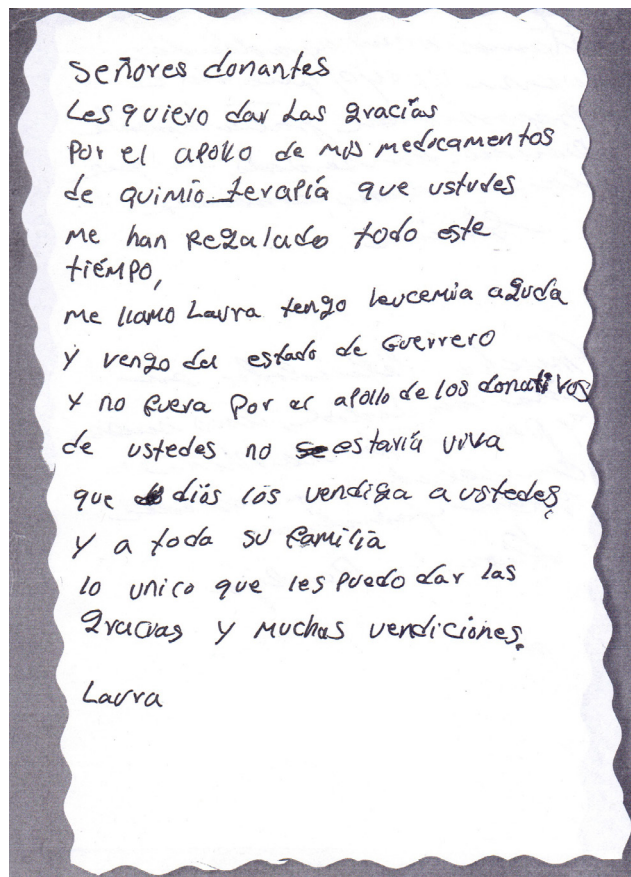 señores donantes
Les quiero dar Las gracias
Por el apollo de mis medicamentos
de quimio-terapía que ustedes
me han Regalado todo este
tiémpo,
me llamo Laura tengo leucemia aguda
y vengo del estado de Guerrero
y no fuera por el apollo de los donativos
de ustedes no estaría viva
que diós los vendiga a ustedes
y a toda su familia
lo unico que les puedo dar las
gracias y muchas vendiciones.
Laura